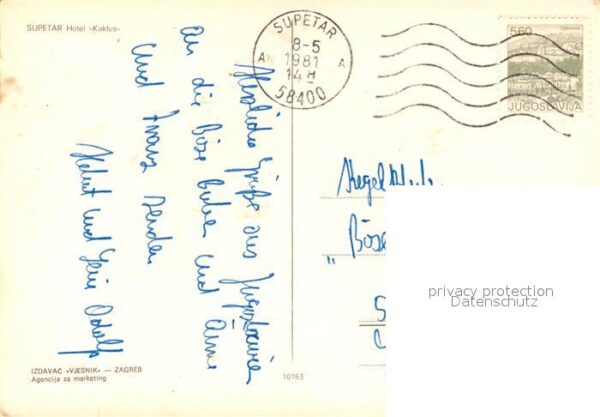 SUPETAR Hotel »Kaktus«
SUPETAR
8-5
A 1981 A
14H
58400
5.60
JUGOSLAVIJA
Herzliche Grüße aus Jugoslawien
an die Böse Buben und
und Franz senden
Helmut und
"Böse
5
privacy protection
Datenschutz
IZDAVAČ »VJESNIK« — ZAGREB
Agencija za marketing
10163